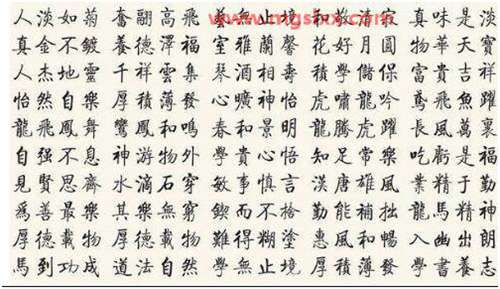 www.mgshxx.com
人淡如菊 奮翮高飛 藝無止境 和敬清寂 真味是淡
真金不鍍 養德澤福 室雅蘭馨 花好月圓 物華天寶
人杰地靈 千祥雲集 琴酒相壽 積學儲保 富貴吉祥
怡然自樂 厚積薄發 心曠神怡 虎嘯龍吟 鳶飛魚躍
龍飛鳳舞 鸞鳳和鳴 春和景明 龍騰虎躍 長風萬裏
自强不息 神游物外 學貴心悟 知足常樂 吃虧是福
見賢思齊 水滴石穿 敏事慎言 漢唐雄風 業精于勤
爲善最樂 其樂無窮 鍥而不捨 勤能補拙 龍馬精神
厚德載物 厚德載物 難得糊塗 惠風和暢 入幽出朗
馬到功成 道法自然 學無止境 厚積薄發 學書養志